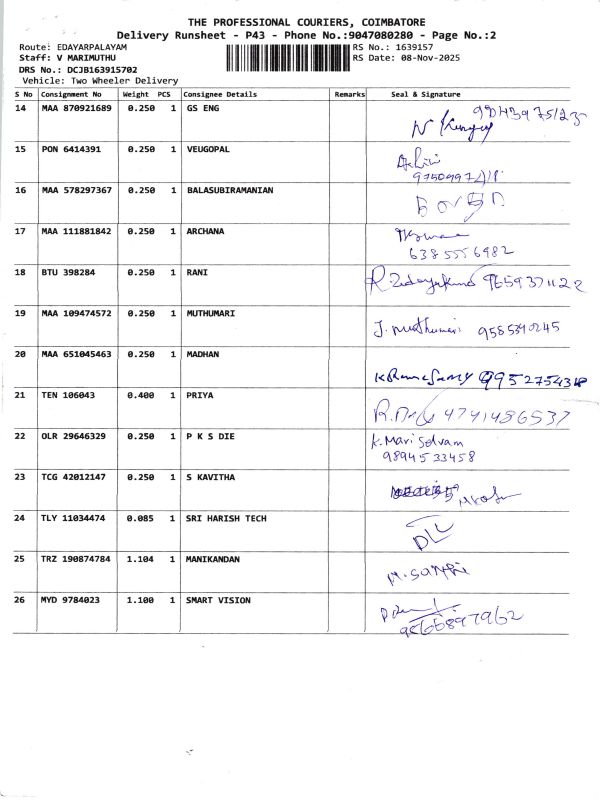 THE PROFESSIONAL COURIERS, COIMBATORE
Delivery Runsheet - P43 - Phone No.:9047080280 - Page No.:2
Route: EDAYARPALAYAM RS No.: 1639157
Staff: V MARIMUTHU RS Date: 08-Nov-2025
DRS No.: DCJB163915702
Vehicle: Two Wheeler Delivery
S No Consignment No Weight PCS Consignee Details Remarks Seal & Signature
14 MAA 870921689 0.250 1 GS ENG
15 PON 6414391 0.250 1 VEUGOPAL
16 MAA 578297367 0.250 1 BALASUBIRAMANIAN
17 MAA 111881842 0.250 1 ARCHANA
6385556982
18 BTU 398284 0.250 1 RANI
19 MAA 109474572 0.250 1 MUTHUMARI J. Muthumari
20 MAA 651045463 0.250 1 MADHAN
21 TEN 106043 0.400 1 PRIYA
22 OLR 29646329 0.250 1 P K S DIE K. Mari Selvam
9894533458
23 TCG 42012147 0.250 1 S KAVITHA
24 TLY 11034474 0.085 1 SRI HARISH TECH
25 TRZ 190874784 1.104 1 MANIKANDAN
26 MYD 9784023 1.100 1 SMART VISION